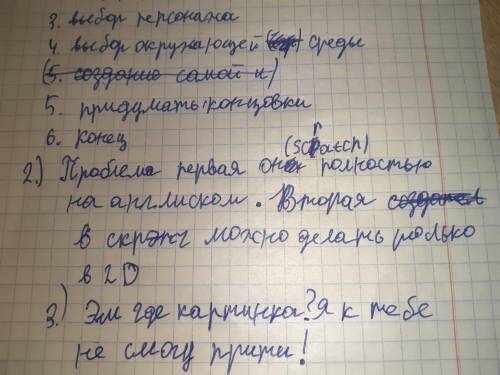 3. выбор персонажа
4. выбор окружающей среды
(5. создание самой и)
5. придумать концовки
6. конец
(Scratch)
2.) Проблема первая он полностью
на англиском. Вторая
в скрэтч можно делать только
в 2D
3.) Эм где картинка? Я к тебе
не смогу прити!